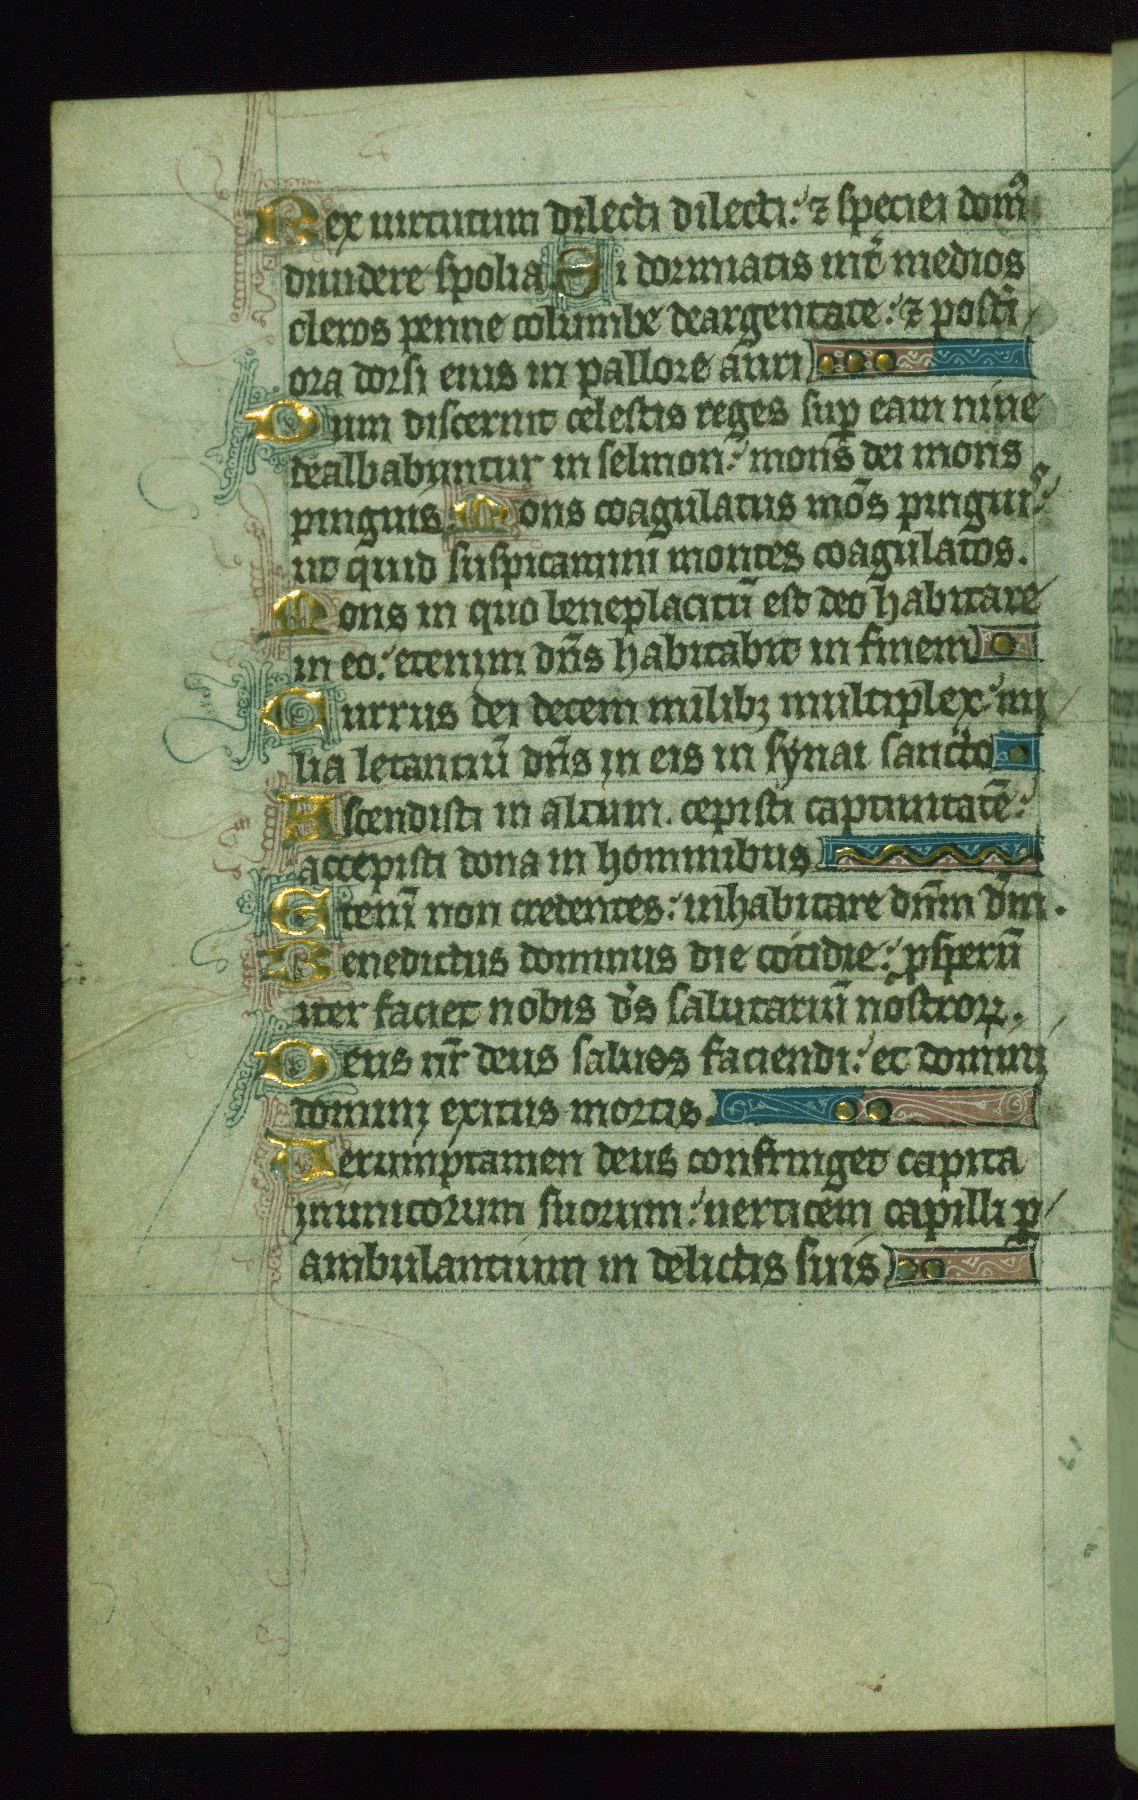 Rex uirtutum dilecti dilecti: ⁊ speciei domꝰ
diuidere spolia Si dormiatis int̄ medios
cleros penne columbe deargentate: ⁊ post̄i
ora dorsi eius in pallore auri
Dum discernit celestis reges suꝑ eam niue
dealbabuntur in selmon: mons dei mons
pinguis. Mons coagulatus mōs pinguis:
ut quid suspicamini montes coagulatos.
Mons in quo beneplacitū est deo habitare
in eo: etenim dn̄s habitabit in finem
Currus dei decem milibꝫ multiplex mi
lia letantiū dn̄s in eis in synai sancto
Ascendisti in altum. cepisti captiuitatē:
accepisti dona in hominibus
Eteni̅ non credentes: inhabitare dn̄m dm̄.
Benedictus dominus die cotidie: ꝓsperū
iter faciet nobis ds̄ salutariū nostroꝝ.
Deus nr̄ deus saluos faciendi: et domini
domini exitus mortis.
Uerumptamen deus confringet capita
inimicorum suorum: uerticem capilli ꝑ
ambulantium in delictis suis